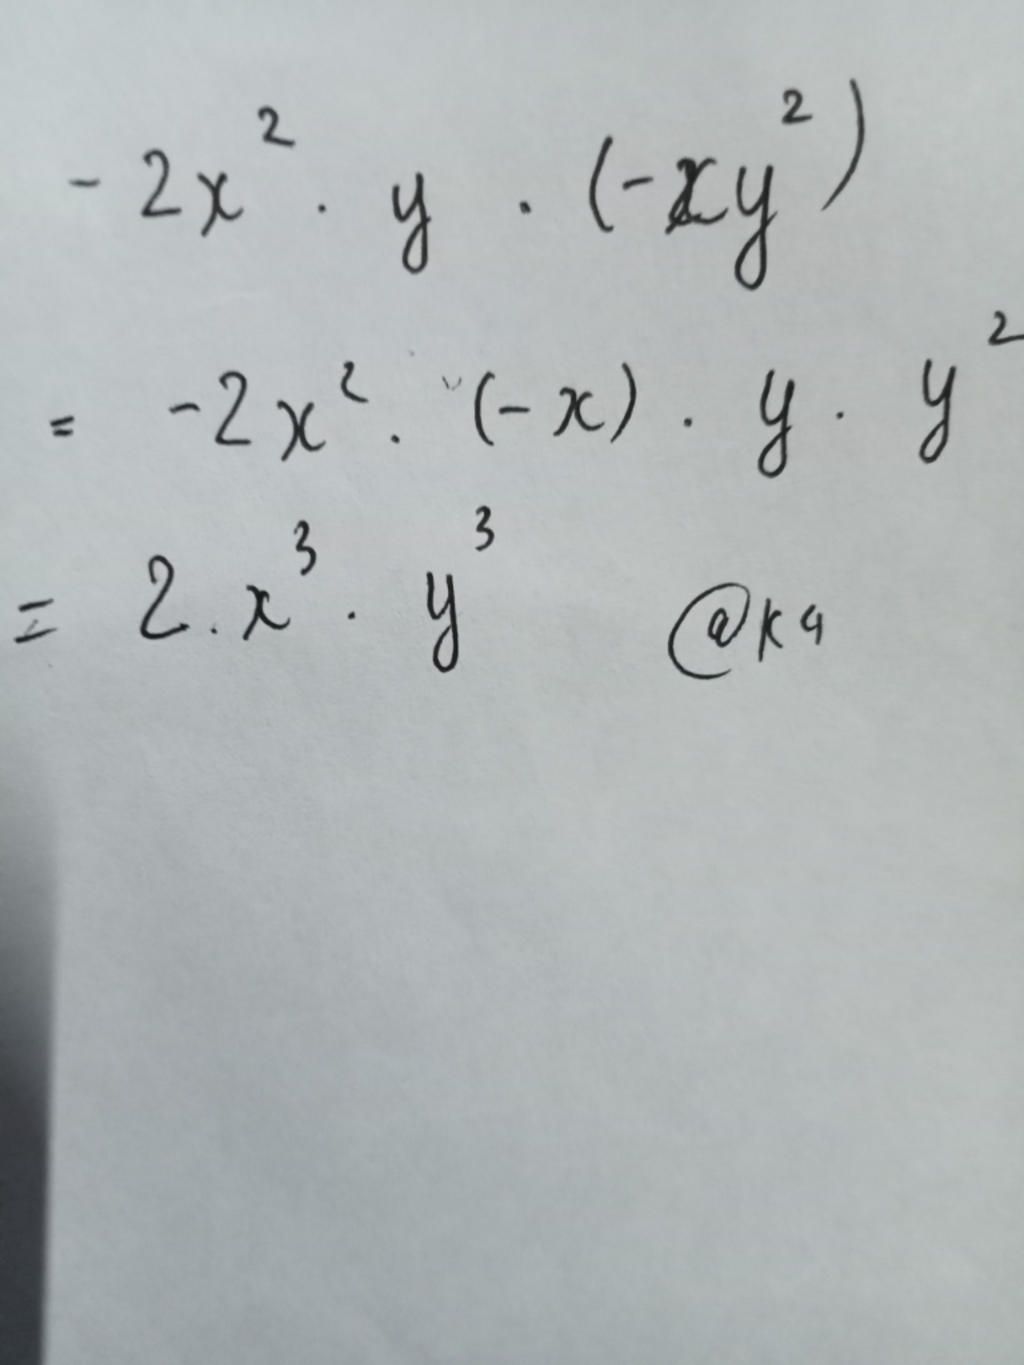 -2x² . y . (-xy²)
= -2x² . (-x) . y . y²
= 2.x³ . y³ @K4